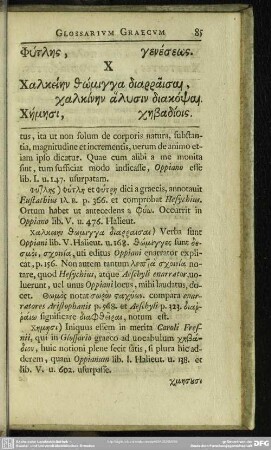 GLOSSARIVM GRAECVM 85
Φύτλης, γενέσεως.
X
Χαλκείην θώμιγγα διαρραῖσαι,
χαλκίνην ἅλυσιν διακόψαι.
Χήμησι, χηβαδίοις.
tus, ita ut non solum de corporis natura, substan-
tia, magnitudine et incrementis, uerum de animo et-
iam ipso dicatur. Quae cum alibi a me monita
sint, tum sufficiat modo indicasse, Oppiano esse
lib. I. u. 147. usurpatam.
Φύτλης) φύτλη et φύτρη dici a graecis, annotauit
Eustathius p. 366. et comprobat Hesychius.
Ortum habet ut antecedens a φύω. Occurrit in
Oppiano lib. V. u. 476. Halieut.
Χαλκείην θώμιγγα διαρραῖσαι) Verba sunt
Oppiani lib. V. Halieut. u. 168. θώμιγγες sunt δε-
σμοὶ, σχοινία, uti editus Oppiani enarrator expli-
cat, p. 156. Non autem tantum λεπτὰ σχοινία no-
tare, quod Hesychius, utque Aeschyli enarrator uo-
luerunt, uel unus Oppiani locus, mihi laudatus, do-
cet. compara enar-
ratores Aristophanis p. 568. et Aeschyli p. 123.
significare διαφθεῖραι, notum est.
Χήμησι) Iniquus essem in merita Caroli Fres-
nii, qui in Glossario graeco ad uocabulum χηβά-
διον, huic notioni plene fecit satis, si plura hic ad-
derem, quam Oppianum lib. I. Halieut. u. 138. et
lib. V. u. 602. usurpasse.